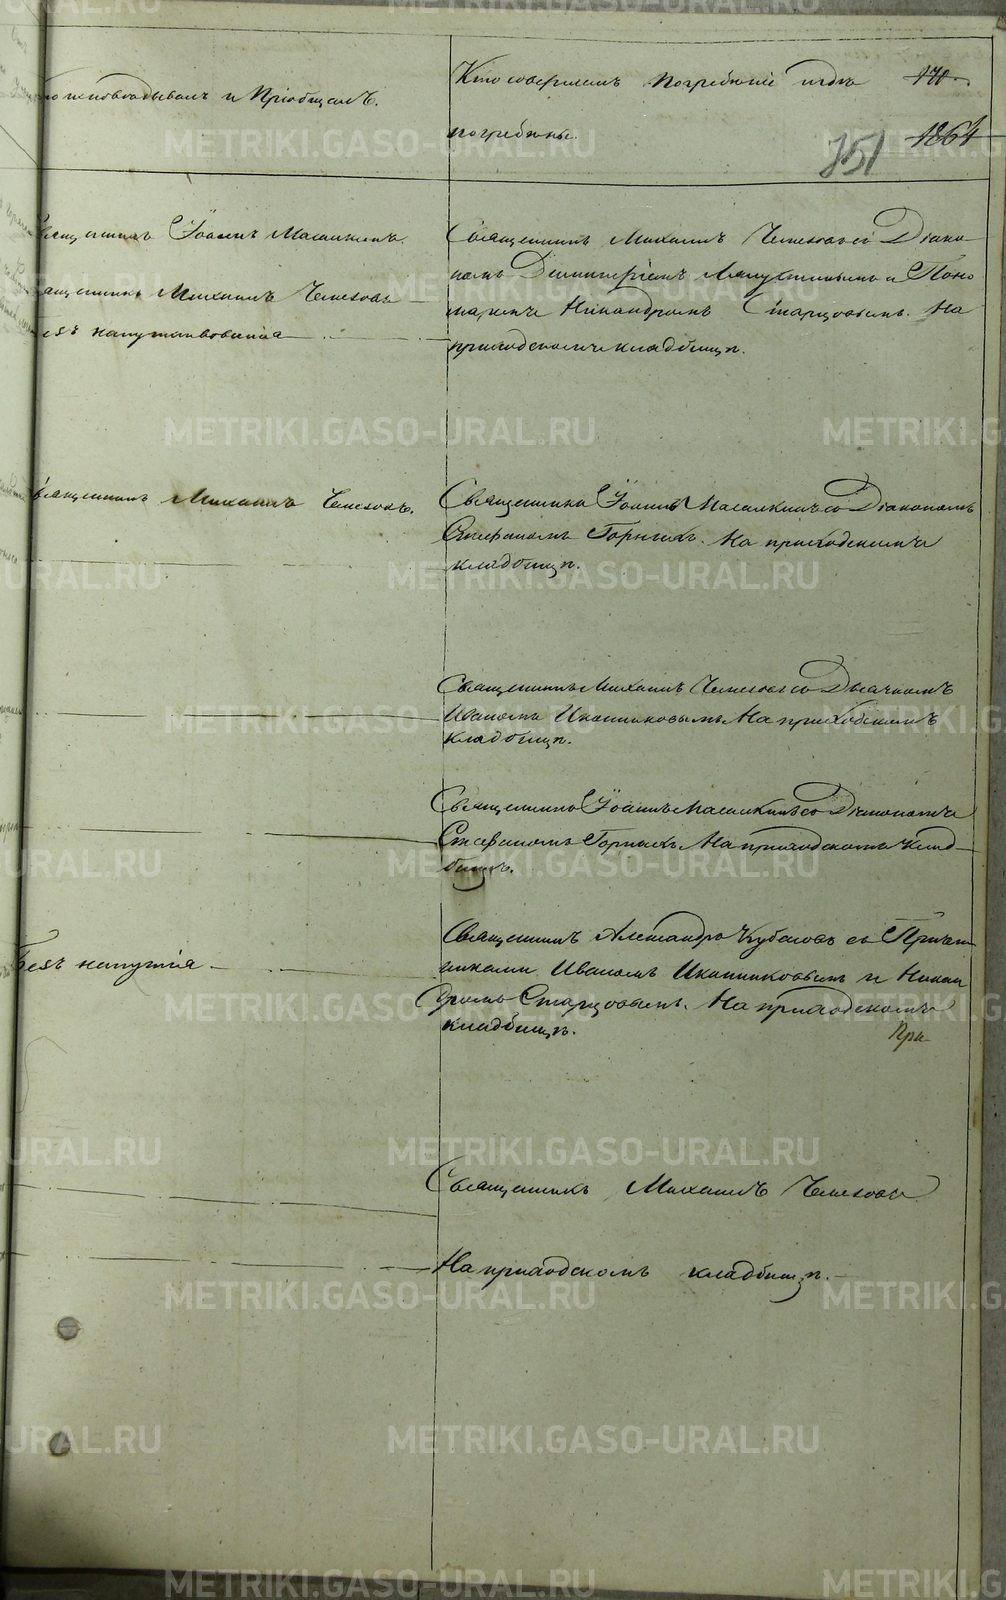 исповѣдывалъ и Пріобщалъ.
Кто совершалъ погребеніе и гдѣ
погребены.
170.
1864
751
Священникъ Іоаннъ Масалкинъ.
Священникъ Михаилъ Чемезовъ
безъ напутствованія
Священникъ Михаилъ Чемезовъ со Діако-
номъ Димитріемъ и Поно
маремъ Никандромъ Старцовымъ. На
приходскомъ кладбищѣ.
Священникъ Михаилъ Чемезовъ.
Священникъ Іоаннъ Масалкинъ со Діакономъ
Стефаномъ Горныхъ. На приходскомъ
кладбищѣ.
Священникъ Михаилъ Чемезовъ со Дьячкомъ
Иваномъ Иконниковымъ На приходскомъ
кладбищѣ.
Священникъ Іоаннъ Масалкинъ со Діакономъ
Стефаномъ Горныхъ. На приходскомъ клад-
бищѣ.
Безъ напутія
Священникъ Александръ съ Причет
никами Иваномъ Иконниковымъ и Никан
дромъ Старцовымъ. На приходскомъ
кладбищѣ.
При
Священникъ Михаилъ Чемезовъ
На приходскомъ кладбищѣ.
METRIKI.GASO-URAL.RU